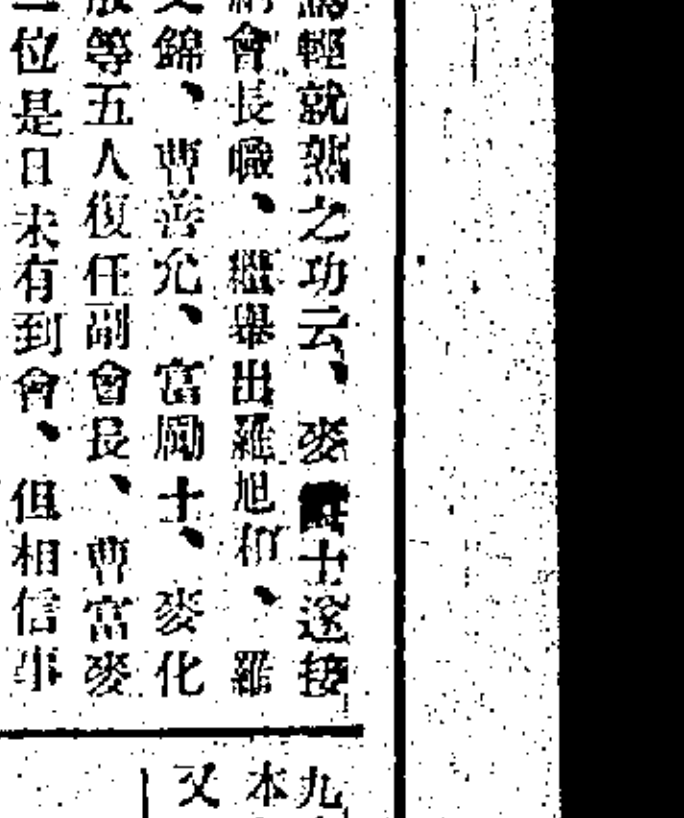 輕就熟之功云、麥爵士遂接
會長職、繼舉出羅旭和、羅
錦、曹善允、富勵士、麥化
等五人復任副會長、曹富麥
位是日未有到會、但相信事
九
本
又